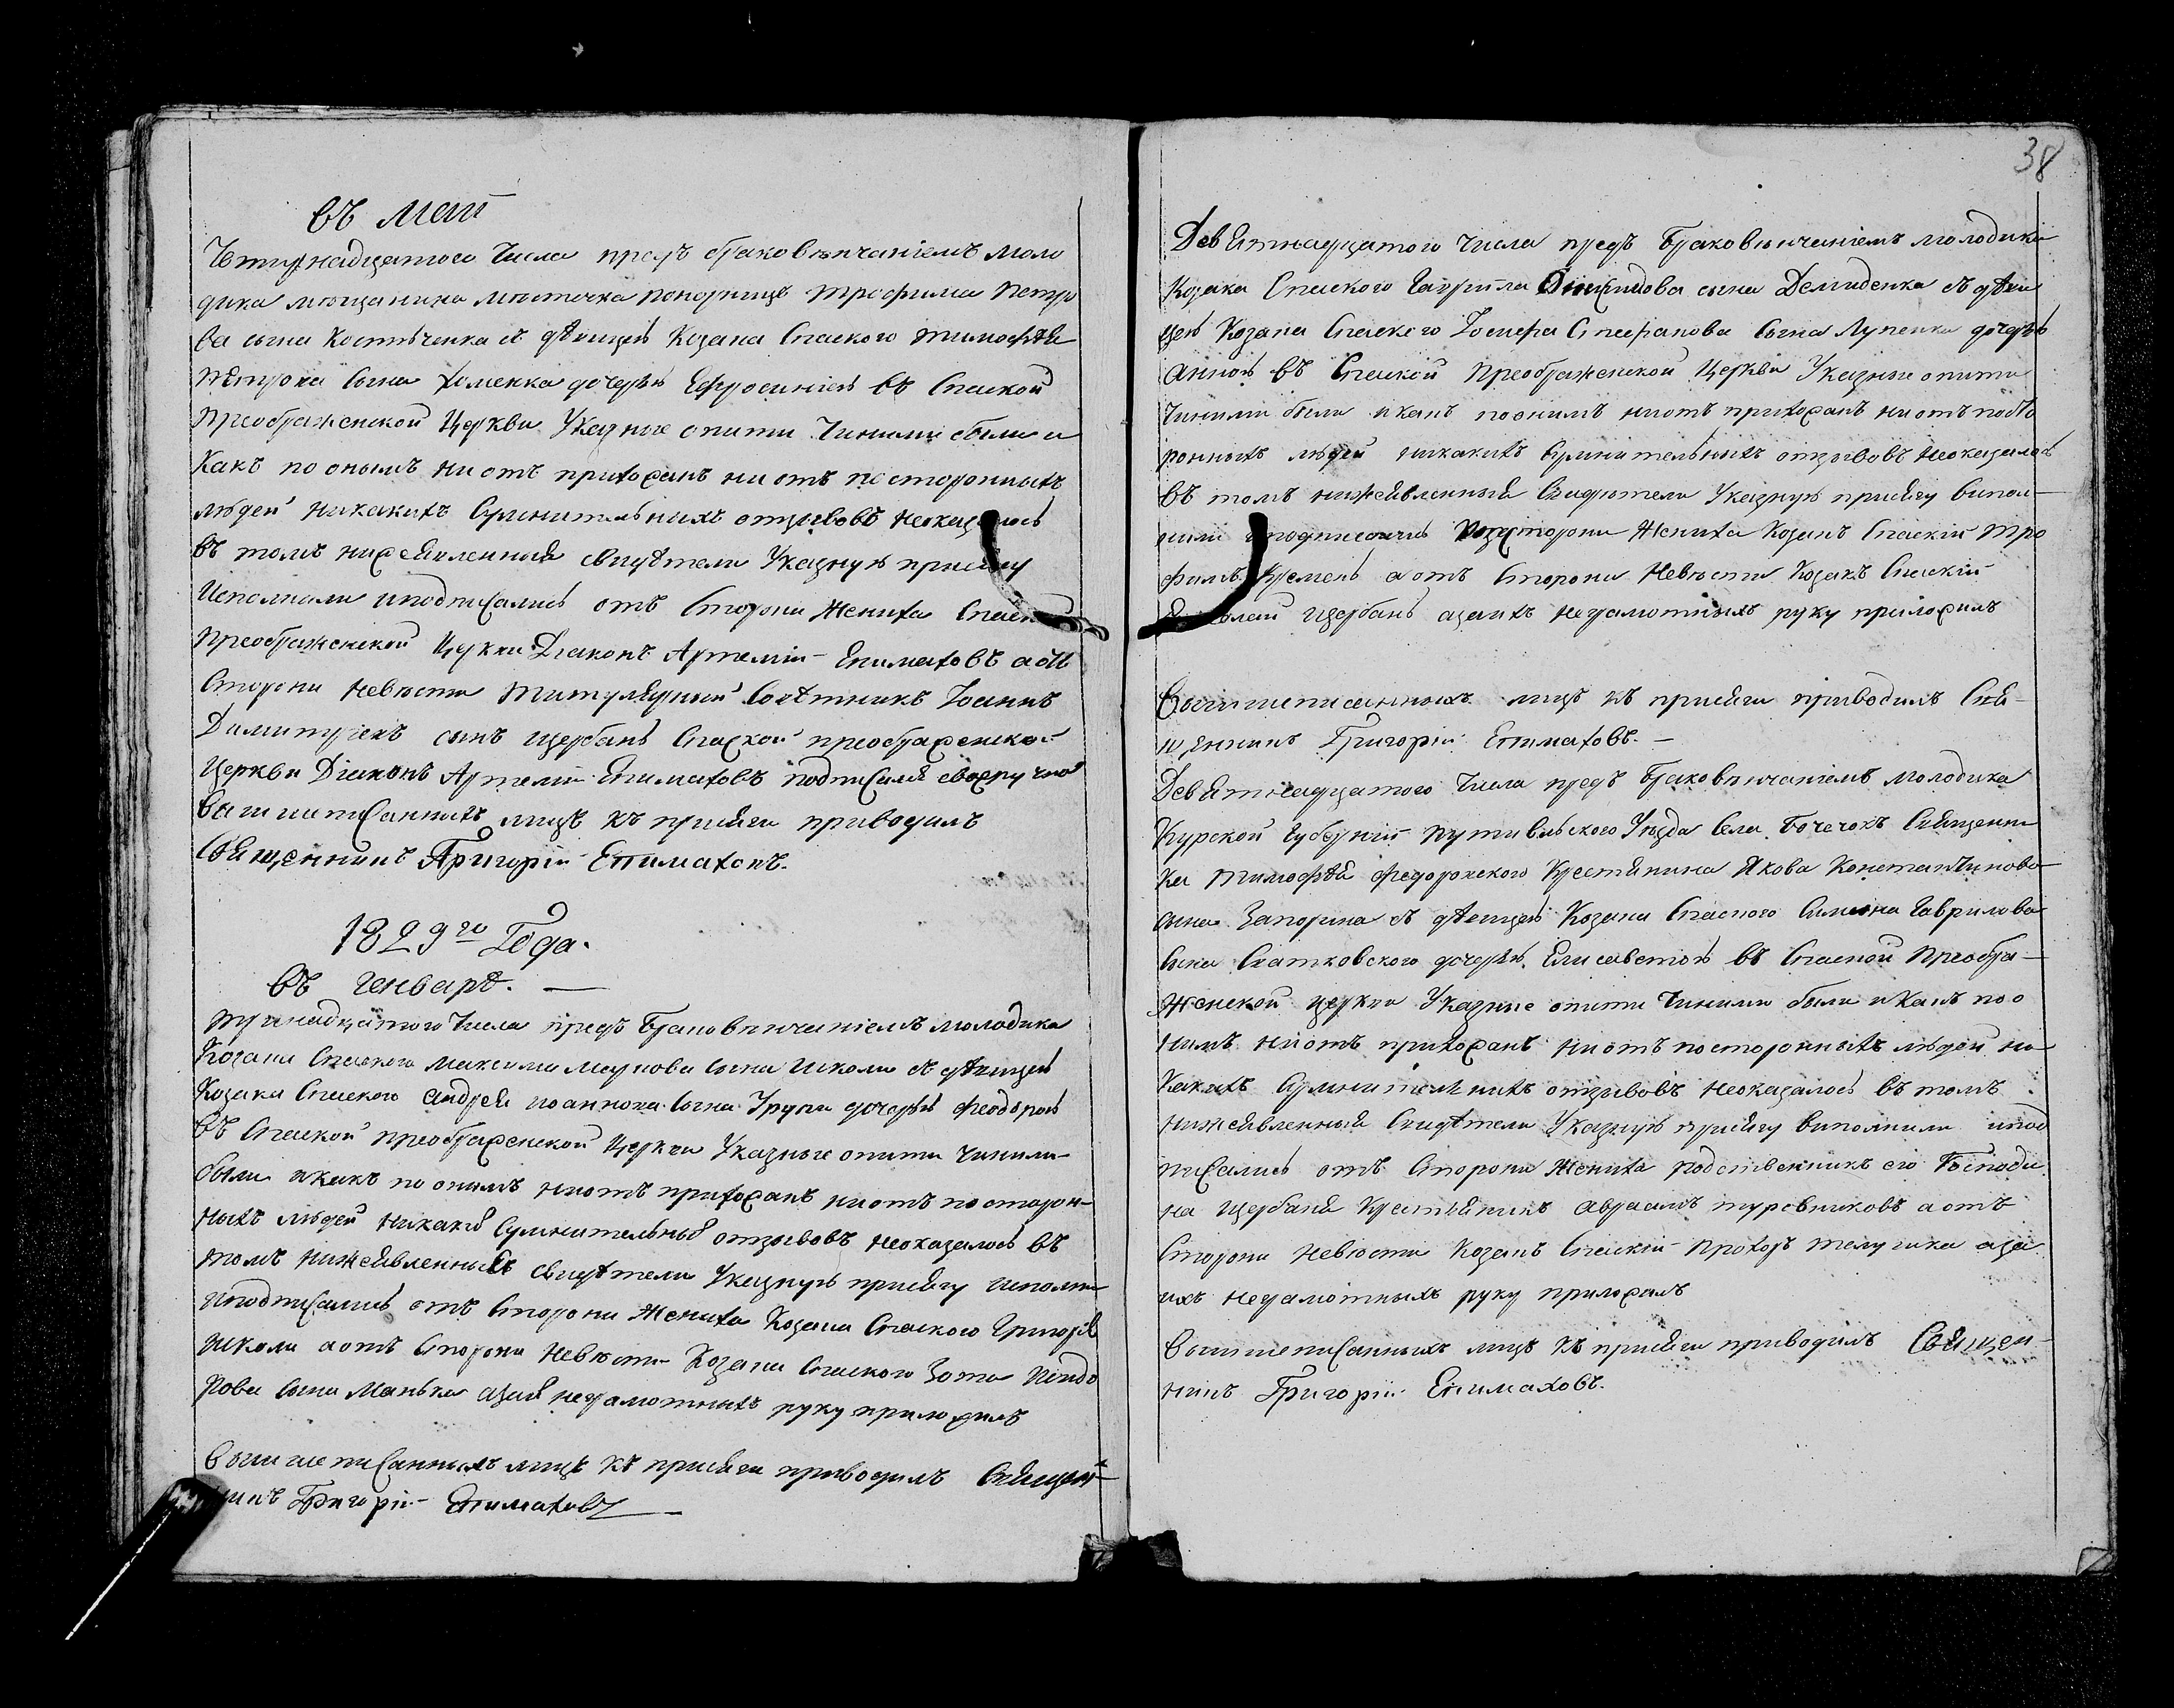 въ Маи
Четырнадцатого Числа предъ браковѣнчаніемъ моло
дика мѣщанина мѣстечка Понорницѣ Трофима Петро
ва сына Костѣченка съ дѣвицею Козака Спаского Тимофѣя
Петрова сына Хоменка дочерью Ефросиніею въ Спаской
Преображенской Церкви Указные опити Чинили были и
Какъ по онымъ ни отъ прихожанъ ни отъ посторонныхъ
людей никакихъ Сумнительнихъ отзывовъ неоказалось
въ томъ нижеявленный свидѣтели Указную присягу
Исполнали иподписались отъ Стороны Жениха Спаской
Преображенской Церкви Діаконъ Артемій Епимаховъ аотъ
Стороны Невѣсти Титулярный Совѣтникъ Іоаннъ
Димитріевъ сынъ Щербань Спаской преображенской
Церкви Діаконъ Артемій Епимаховъ подписался своеручно
Вишшеписанныхъ лицъ къ присяги приводилъ
Священникъ Григорій Епимаховъ.
1829го Года.
въ генварѣ. —
Тринадцатого Числа предъ браковѣнчаніемъ молодика
Козака Спаского Максима Маркова сына Школи съ дѣвицею
Козака Спаского Андрея Иоаннова сына Урупи дочерью Феодорою
въ Спаской преображенской Церкви Указные опити чинили
были икакъ по онимъ ниотъ прихожанъ ниотъ посторон-
ныхъ людей Никакій Сумнительный отзывовъ неоказалось въ
томъ нижеявленный свидѣтели Указную присягу исполни
иподписались отъ Стороны Жениха Козака Спаского Григорій
Школи аотъ Стороны Невѣсти Козака Спаского Зота
рова сына Манька азаи неграмотныхъ руку приложилъ
Вышшеписанныхъ лицъ къ присяги приводилъ Священ-
никъ Григорій Епимаховъ —
38
Девятнадцатого Числа предъ браковѣнчаніемъ молодика
Козака Спаского Гаврiила сына Демиденка съ дѣви
цею Козака Спаского Іосифа Стефанова сына Лупенка дочерью
Анною въ Спаской Преображенской Церкви Указные опити
Чинили были икакъ поонимъ ниотъ прихожанъ ниотъ посто
ронныхъ людей никакихъ Сумнительныхъ отзывовъ неоказалось
въ томъ нижеявленный Свидѣтели Указную присягу випол-
нили иподписались стороны Жениха Козакъ Спаскій Тро
фимъ Кремень аотъ Стороны Невѣсти Козакъ Спаскій
Щербань азаихъ неграмотныхъ руку приложилъ
Вышшеписанныхъ лицъ къ присяги приводилъ Свя-
щенникъ Григорій Епимаховъ. —
Девятнадцатого Числа предъ браковѣнчаніемъ молодика
Курской губерніи Путивльского Уѣзда Села Бочечокъ Священни
ка Тимофѣя Федоровского Крестянина Якова Константинова
сына Запорина съ дѣвицею Козака Спаского Симеона Гаврилова
сына Скатковского дочерью Елисаветою въ Спаской Преобра-
женской церкви Указные опити Чинили были икакъ по о
нимъ ниотъ прихожанъ ниотъ посторонныхъ людей ни
какихъ Сумнителнихъ отзывовъ неоказалось въ томъ
нижеявленный Свидѣтели Указную присягу виполнили ипод
писались отъ Стороны Жениха родственникъ его Господи
на Щербаня Крестяникъ Авраамъ Туровниковъ аотъ
Стороны Невѣсти Козакъ Спаскій Прохоръ Телугика аза
ихъ неграмотныхъ руку приложилъ
Вышшеписанныхъ лицъ къ присяги приводилъ Священ-
никъ Григорій Епимаховъ.